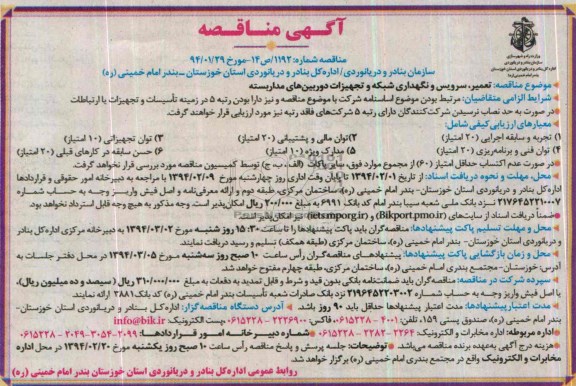 آگهی مناقصه
مناقصه شماره: ۱۱۹۲/ص/۱۴-مورخ ۹۴/۰۱/۲۹
سازمان بنادر و دریانوردی/ اداره کل بنادر و دریانوردی استان خوزستان – بندر امام خمینی (ره)
وزارت راه و شهرسازی
سازمان بنادر و دریانوردی
موضوع مناقصه: تعمیر، سرویس و نگهداری شبکه و تجهیزات دوربین‌های مداربسته
شرایط الزامی متقاضیان: مرتبط بودن موضوع اساسنامه شرکت با موضوع مناقصه و نیز دارا بودن رتبه ۵ در زمینه تأسیسات و تجهیزات یا ارتباطات
در صورت به حد نصاب نرسیدن شرکت‌کنندگان دارای رتبه ۵ شرکت‌های فاقد رتبه نیز مورد ارزیابی قرار خواهند گرفت.
معیارهای ارزیابی کیفی شامل:
۱) تجربه و سابقه اجرایی (۲۰ امتیاز) ۲) توان مالی و پشتیبانی (۲۰ امتیاز) ۳) توان تجهیزاتی (۱۰ امتیاز)
۴) توان فنی و برنامه‌ریزی (۲۰ امتیاز) ۵) مدارک ویژه (۱۰ امتیاز) ۶) حسن سابقه در کارهای قبلی (۲۰ امتیاز)
در صورت عدم اکتساب حداقل امتیاز (۶۰) از مجموع موارد فوق، سایر پاکات (الف، ب، ج) توسط کمیسیون مناقصه مورد بررسی قرار نخواهد گرفت.
محل، مهلت و نحوه دریافت اسناد: از تاریخ ۱۳۹۴/۰۲/۰۱ تا پایان وقت اداری روز چهارشنبه مورخ ۱۳۹۴/۰۲/۰۹ با مراجعه به دبیرخانه امور حقوقی و قراردادها
اداره کل بنادر و دریانوردی استان خوزستان- بندر امام خمینی (ره)، ساختمان مرکزی، طبقه دوم و ارائه معرفی‌نامه و اصل فیش واریز وجه به حساب شماره
۲۱۷۶۴۵۲۲۱۰۰۷ نزد بانک ملی شعبه سیبا بندر امام کد بانک ۶۹۹۱ به مبلغ ۲۰۰/۰۰۰ ریال امکان‌پذیر است. وجه مذکور به هیچ وجه قابل استرداد نخواهد بود.
ضمناً دریافت اسناد از سایت‌های (Bikport.pmo.ir) و (iets.mporg.ir) نیز امکان‌پذیر است.
محل و مهلت تسلیم پاکت پیشنهادها: مناقصه‌گران باید پاکت پیشنهادها را تا ساعت ۱۵:۳۰ روز شنبه مورخ ۱۳۹۴/۰۳/۰۲ به دبیرخانه مرکزی اداره کل بنادر
و دریانوردی استان خوزستان- بندر امام خمینی (ره)، ساختمان مرکزی (طبقه همکف) تسلیم و رسید دریافت نمایند.
محل و زمان بازگشایی پاکت پیشنهادها: پیشنهادهای مناقصه‌گران رأس ساعت ۱۰ صبح روز سه‌شنبه مورخ ۱۳۹۴/۰۳/۰۵ در محل دفتر جلسات به
آدرس: خوزستان- مجتمع بندری امام خمینی (ره)، ساختمان مرکزی، طبقه چهارم مفتوح خواهد شد.
سپرده شرکت در مناقصه: مناقصه‌گران باید ضمانت‌نامه بانکی بدون قید و شرط و قابل تمدید به دفعات به مبلغ ۳۱۰/۰۰۰/۰۰۰ ریال (سیصد و ده میلیون ریال)،
یا اصل فیش واریز وجه به حساب شماره ۲۱۹۶۴۵۲۲۰۳۰۰۲ نزد بانک صادرات، شعبه تأسیسات بندر امام خمینی (ره) کد بانک ۲۸۸۱ ارائه نمایند.
مدت اعتبار پیشنهادها: مدت اعتبار پیشنهادها حداقل باید ۹۰ روز باشد. آدرس دستگاه مناقصه گزار: اداره کل بنادر و دریانوردی استان خوزستان-
بندر امام خمینی (ره)، صندوق پستی ۱۵۹، تلفن: ۴۰۰۱ - ۰۶۱۵۲۲۸ فاکس: ۲۲۲۶۹۰۰ - ۰۶۱۵، پست الکترونیک: info@bik.ir
اداره مربوطه: اداره مخابرات و الکترونیک ۲۲۶۴ - ۲۲۸۲ - ۰۶۱۵۲۲۸ شماره دبیرخانه امور قراردادها: ۲۰۹۹-۳۰۵۴-۲۰۴۹ - ۰۶۱۵۲۲۸
هزینه درج آگهی به‌عهده برنده مناقصه می‌باشد. توضیحات: جلسه پرسش و پاسخ مناقصه رأس ساعت ۱۰ صبح روز یکشنبه مورخ ۱۳۹۴/۰۲/۲۰ در محل اداره
مخابرات و الکترونیک واقع در مجتمع بندری امام خمینی (ره) برگزار خواهد شد.
روابط عمومی اداره کل بنادر و دریانوردی استان خوزستان بندر امام خمینی (ره)